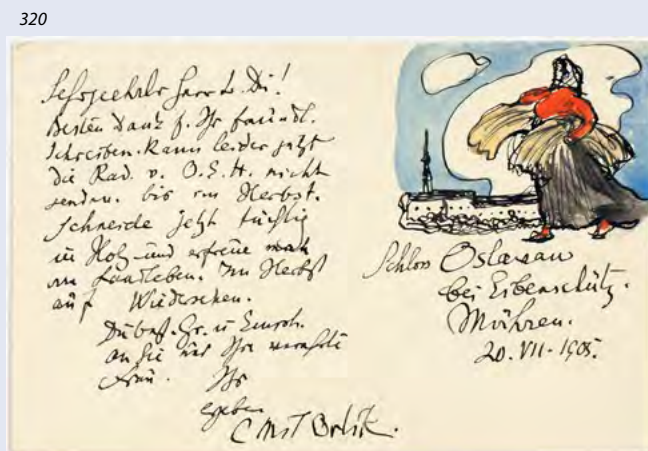 320
Sehrgeehrter Herr L. Di!
Besten Dank f. Ihr freundl.
Schreiben. Kann leider jetzt
die Rad. v. O. E. H. nicht
senden. bis im Herbst.
Schneide jetzt tüchtig
in Holz und erfreue mich
am Landleben. Im Herbst
auf Wiedersehen.
an Sie und Ihre verehrte
Frau. Ihr
ergeben
Emil Orlik.
Schloss Oslawan
bei Eibenschütz.
Mähren.
20. VII. 1905.